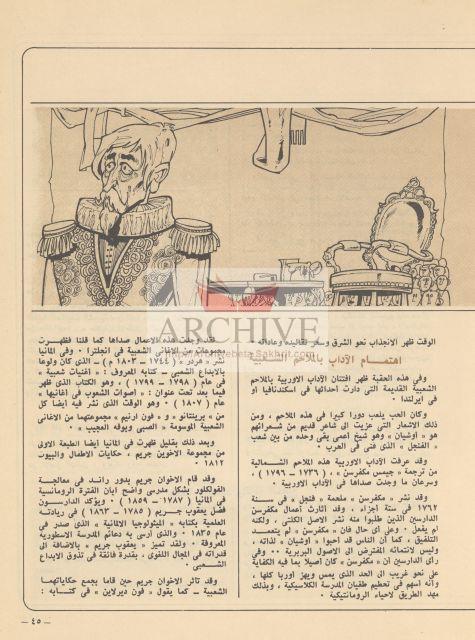 الوقت ظهر الانجذاب نحو الشرق وسحر تقاليده وعاداته.
اهتمام الآداب بالملاحم الشعبية
وفي هذه الحقبة ظهر افتتان الآداب الاوربية بالملاحم
الشعبية القديمة التي دارت أحداثها في اسكندنافيا او
في ايرلندا.
وكان الحب يلعب دورا كبيرا في هذه الملاحم، ومن
ذلك الاشعار التي عزيت الى شاعر قديم من شعرائهم
هو «أوشيان» وهو شيخ أعمى بقى وحده من بين شعب
«الفنجل» الذى فنى في الحرب.
وقد عرفت الآداب الاوربية هذه الملاحم الشمالية
من ترجمة «جيمس مكفرسن»، (١٧٣٦ - ١٧٩٦)،
وسرعان ما وجدت صداها في الآداب الاوربية.
وقد نشر «مكفرسن» ملحمة «فنجل» في سنة
١٧٦٢ في ستة أجزاء، وقد أثارت أعمال مكفرسن
الدارسين الذين طلبوا منه نشر الاصل الكلتى، ولكنه
لم يفعل. وعلى أى حال فان «مكفرسن» لم يتعمد
التلفيق، كما أن الناس قد أحبوا «أوشيان» لذاته،
وليس لانتمائه المفترض الى الاصول البربرية.. وفي
رأى الدارسين أن «مكفرسن» كان أصيلا بما فيه الكفاية
على نحو غريب الى الحد الذى يمس ويهز أوربا كلها،
وأنه أسهم في تحطيم طغيان المدرسة الكلاسيكية، وبذلك
مهد الطريق لاحياء الرومانتيكية.
لقد وجدت هذه الاعمال صداها كما قلنا فظهرت
مجموعات من الاغانى الشعبية في انجلترا. وفي المانيا
نشر «هردر» (١٧٤٤ - ١٨٠٣ م) - الذى كان ولوعا
بالابداع الشعبى - كتابه المعروف: «أغنيات شعبية»
في عام (١٧٩٨ - ١٧٩٩)، وهو الكتاب الذى ظهر
فيما بعد تحت عنوان: «أصوات الشعوب في أغانيها»
عام (١٨٠٧). وهو الوقت الذى نشر فيه أيضا كل
من «برينتانو» و «فون ارنيم» مجموعتهما من الاغانى
الشعبية الموسومة «الصبى وبوقه العجيب».
وبعد ذلك بقليل ظهرت في المانيا أيضا الطبعة الاولى
من مجموعة الاخوين جريم، حكايات الاطفال والبيوت
١٨١٢
وقد قام الاخوان جريم بدور رائد في معالجة
الفولكلور بشكل مدرسى واضح ابان الفترة الرومانسية
في المانيا (١٧٨٧ - ١٨٥٩). ويؤكد الدارسون
فضل يعقوب جريم (١٧٨٥ - ١٨٦٣) في ريادته
العلمية بكتابه «الميثولوجيا الالمانية» الذى صدر في
عام ١٨٣٥ والذى أرسى به دعائم المدرسة الاسطورية
المعروفة. ولقد تميز «يعقوب جريم» بالاضافة الى
قدراته في المجال اللغوى، بقدرة فائقة في تذوق الابداع
الشعبى.
وقد تأثر الاخوان جريم حين قاما بجمع حكاياتهما
الشعبية - كما يقول «فون ديرلاين» في كتابه:
- ٤٥ -
ARCHIVE